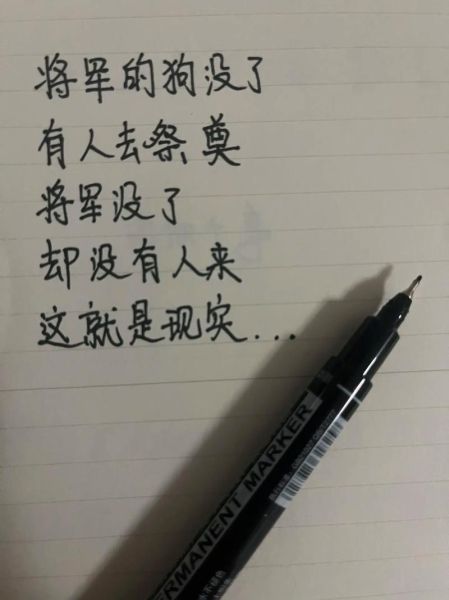 将军的狗没了
有人去祭奠
将军没了
却没有人来
这就是现实...
PERMANENT MARKER